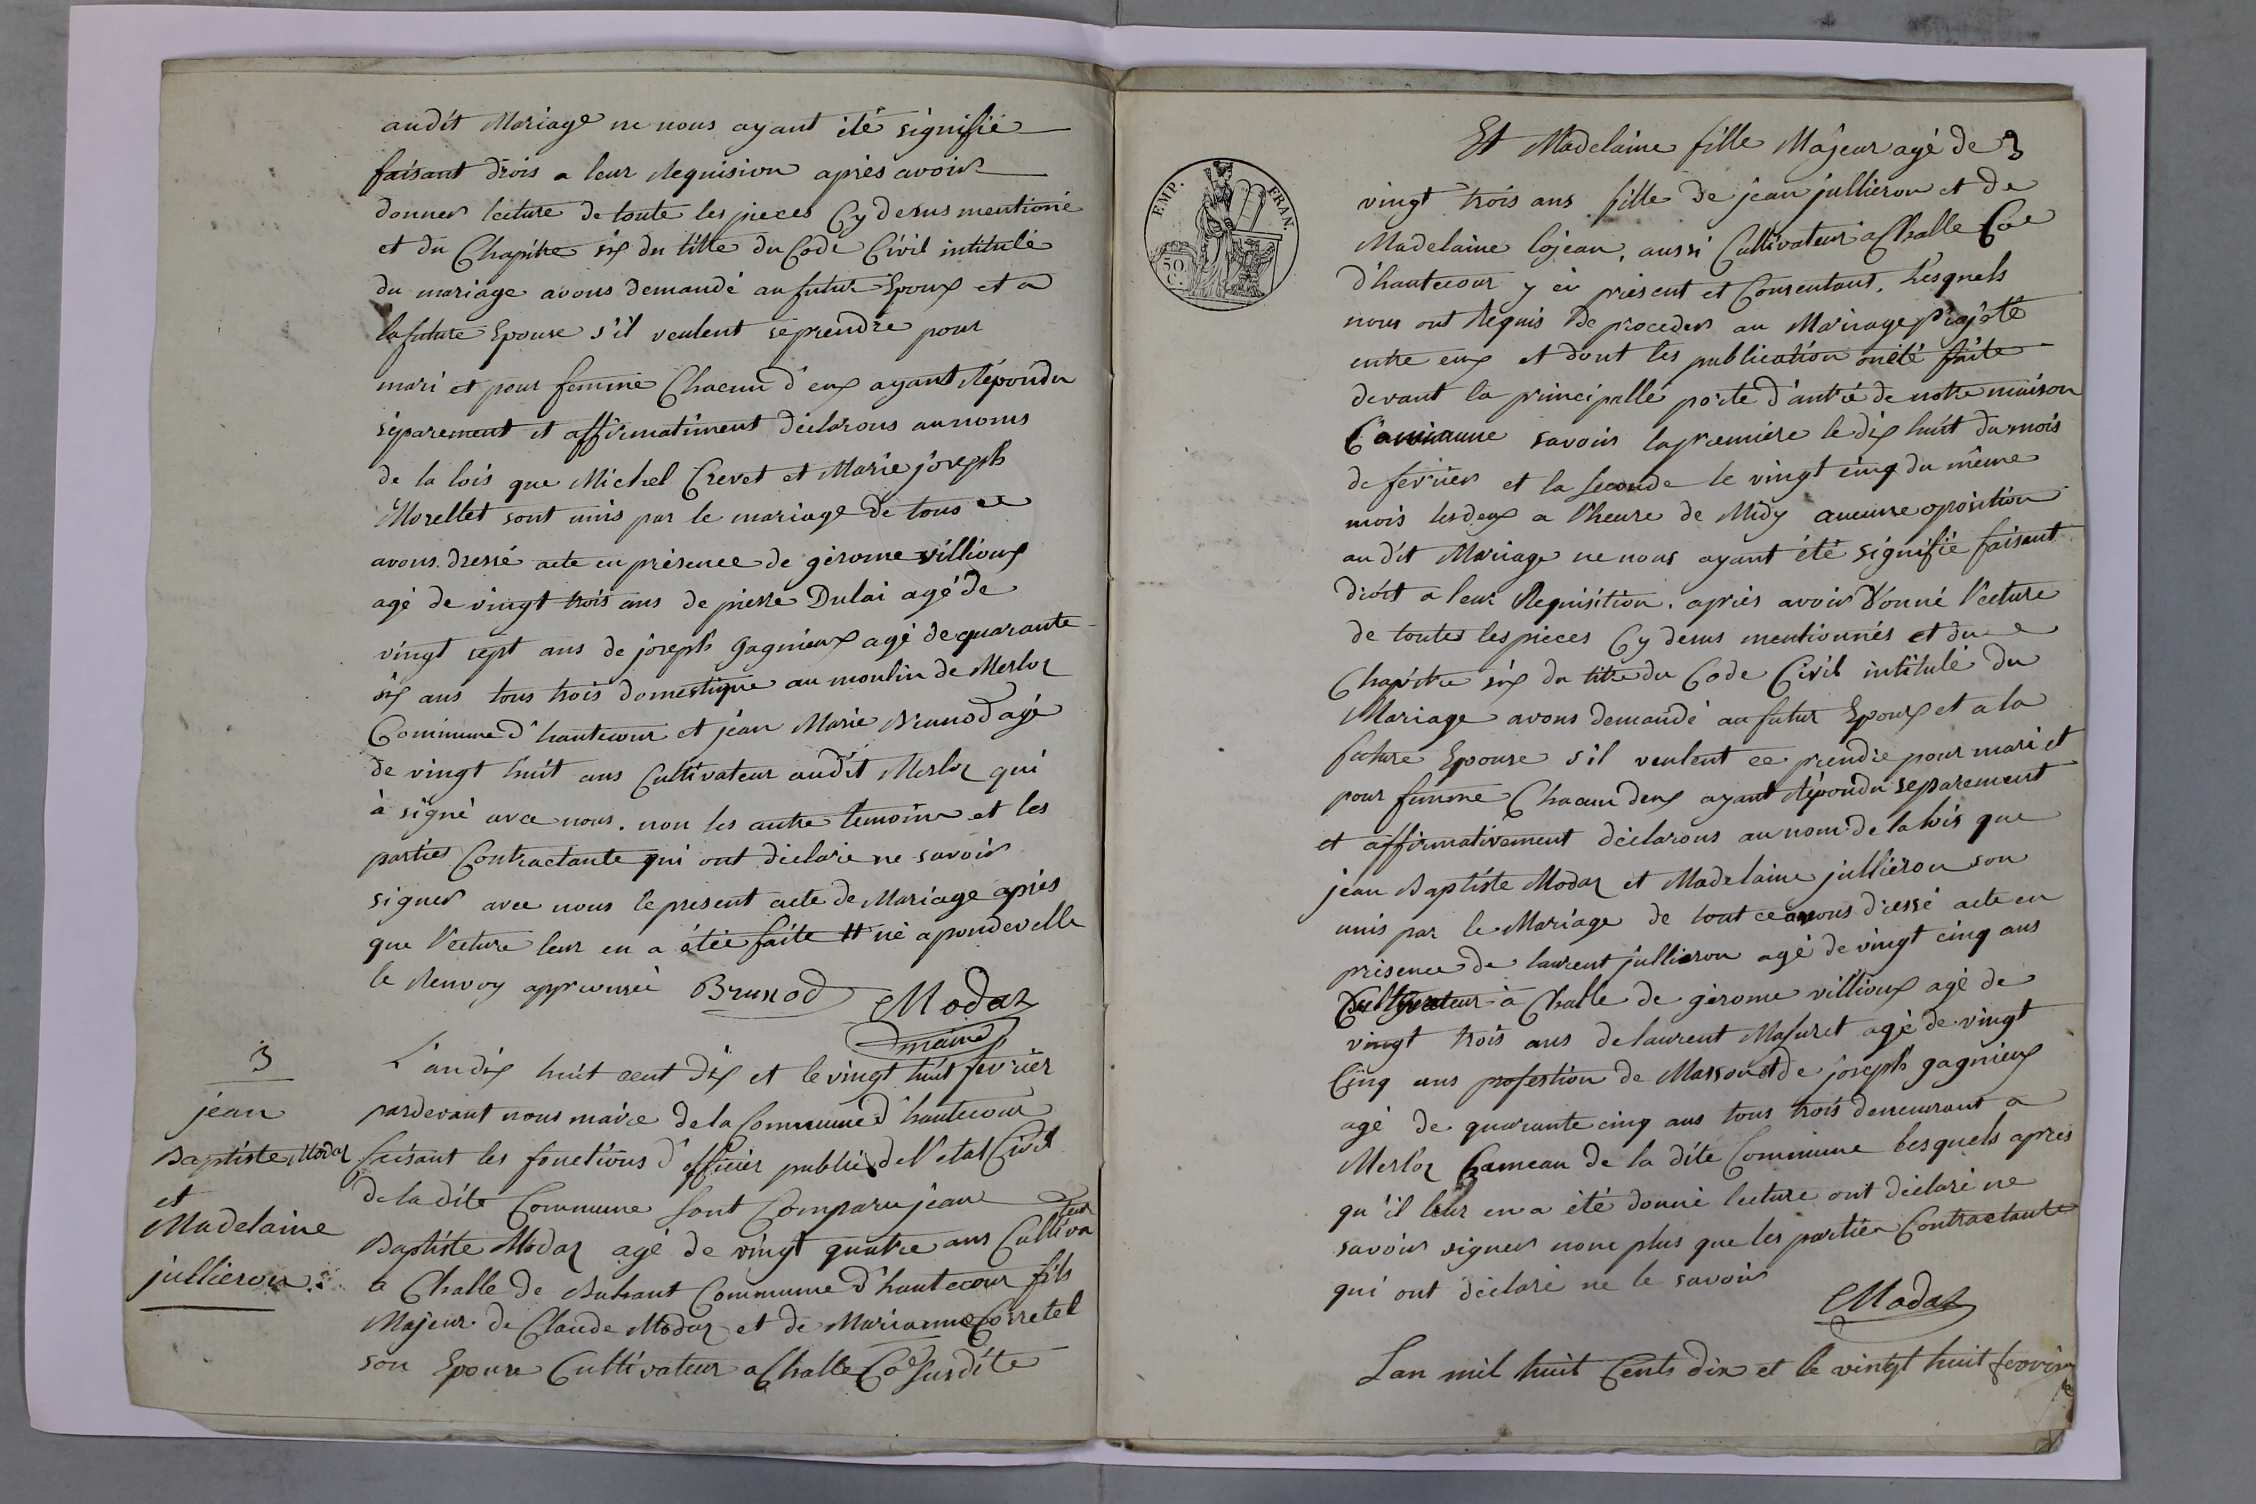 audit Mariage ne nous ayant été signifié
faisant drois a leur Requision après avoir
donner lecture de toute les pieces Cy desus mentioné
et du Chapitre six du titte du Code Civil intitulé
du mariage avons demandé au futur Epoux et a
la future Epouse s'il veulent se prendre pour
mari et pour femme Chacun d'eux ayant Répondu
séparement et affirmatiment déclarons au noms
de la lois que Michel Crevet et Marie joseph
Morellet sont unis par le mariage de tous ce
avons dressé acte en présence de gérome villioux
agé de vingt trois ans de pierre Dulai agé de
vingt sept ans de joseph gagnieux agé de quarante
six ans tous trois domestique au moulin de Merloz
Commune d'hautecour et jéan Marie Brunod agé
de vingt huit ans Cultivateur audit Merloz qui
à signé avec nous. non les autre temoins et les
parties Contractante qui ont déclaré ne savoir
signer avec nous le present acte de Mariage après
que l'ecture leur en a étée faite # né apondevelle
le Renvoy approuvé Brunod Modaz
maire
3
jean
Baptiste Modaz
et
Madelaine
jullieron
L'an dix huit cent dix et le vingt huit fevrier
pardevant nous maire de la Commune d'hautecour
faisant les fonctions d'officier public de l'etat Civil
de la dite Commune sont Comparu jean
Baptiste Modaz agé de vingt quatre ans Cultiva
teur
a Challe de Buhant Commune d'hautecour fils
Majeur de Claude Modaz et de Marianne Corretel
son Epouse Cultivateur a Challe Coe susdite
EMP. FRAN.
50
C.
Et Madelaine fille Majeur agé de 3
vingt trois ans fille de jean jullieron et de
Madelaine lojean, aussi Cultivateur a Challe Coe
d'hautecour y ci présent et Consentant. Lesquels
nous ont Requis de proceder au Mariage Projeté
entre eux et dont les publication on été faite
devant la principalle porte d'antré de notre maison
Commune savoir la premiere le dix huit du mois
de fevrier et la seconde le vingt cinq du même
mois les deux a l'heure de Midy aucune oposition
au dit Mariage ne nous ayant été signifié faisant
droit a leur Requisition. après avoir donné l'ecture
de toutes les pieces Cy desus mentionnés et du
Chapitre six du titre du Code Civil intitulé du
Mariage avons demandé au futur Epoux et a la
future Epouse s'il veulent ce prendre pour mari et
pour femme Chacun deux ayant Répondu séparement
et affirmativement déclarons au nom de la lois que
jean Baptiste Modaz et Madelaine jullieron son
unis par le Mariage de tout ce avons dressé acte en
présence de laurent jullieron agé de vingt cinq ans
Cultivateur à Challe de gérome villioux agé de
vingt trois ans de laurent Masuret agé de vingt
Cinq ans profestion de Masson et de joseph gagnieux
agé de quarante cinq ans tous trois demeurant a
Merloz hameau de la dite Commune lesquels après
qu'il leur en a été donné lecture ont déclaré ne
savoir signer none plus que les partien Contractante
qui ont déclaré ne le savoir
Modaz
Lan mil huit Cents dix et le vingt huit fevrier